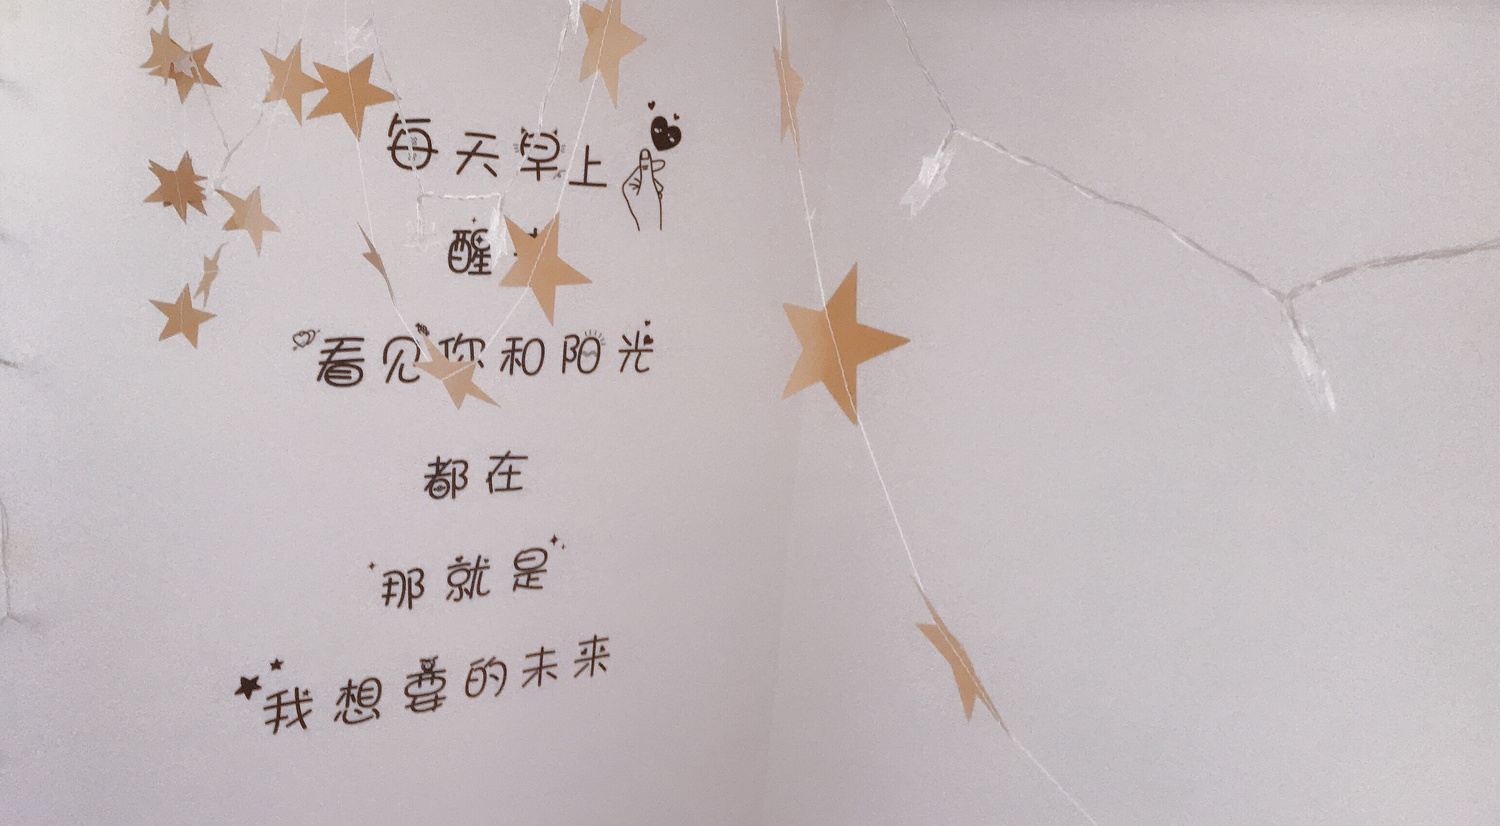 每天早上
醒
看见你和阳光
都在
那就是
我想要的未来